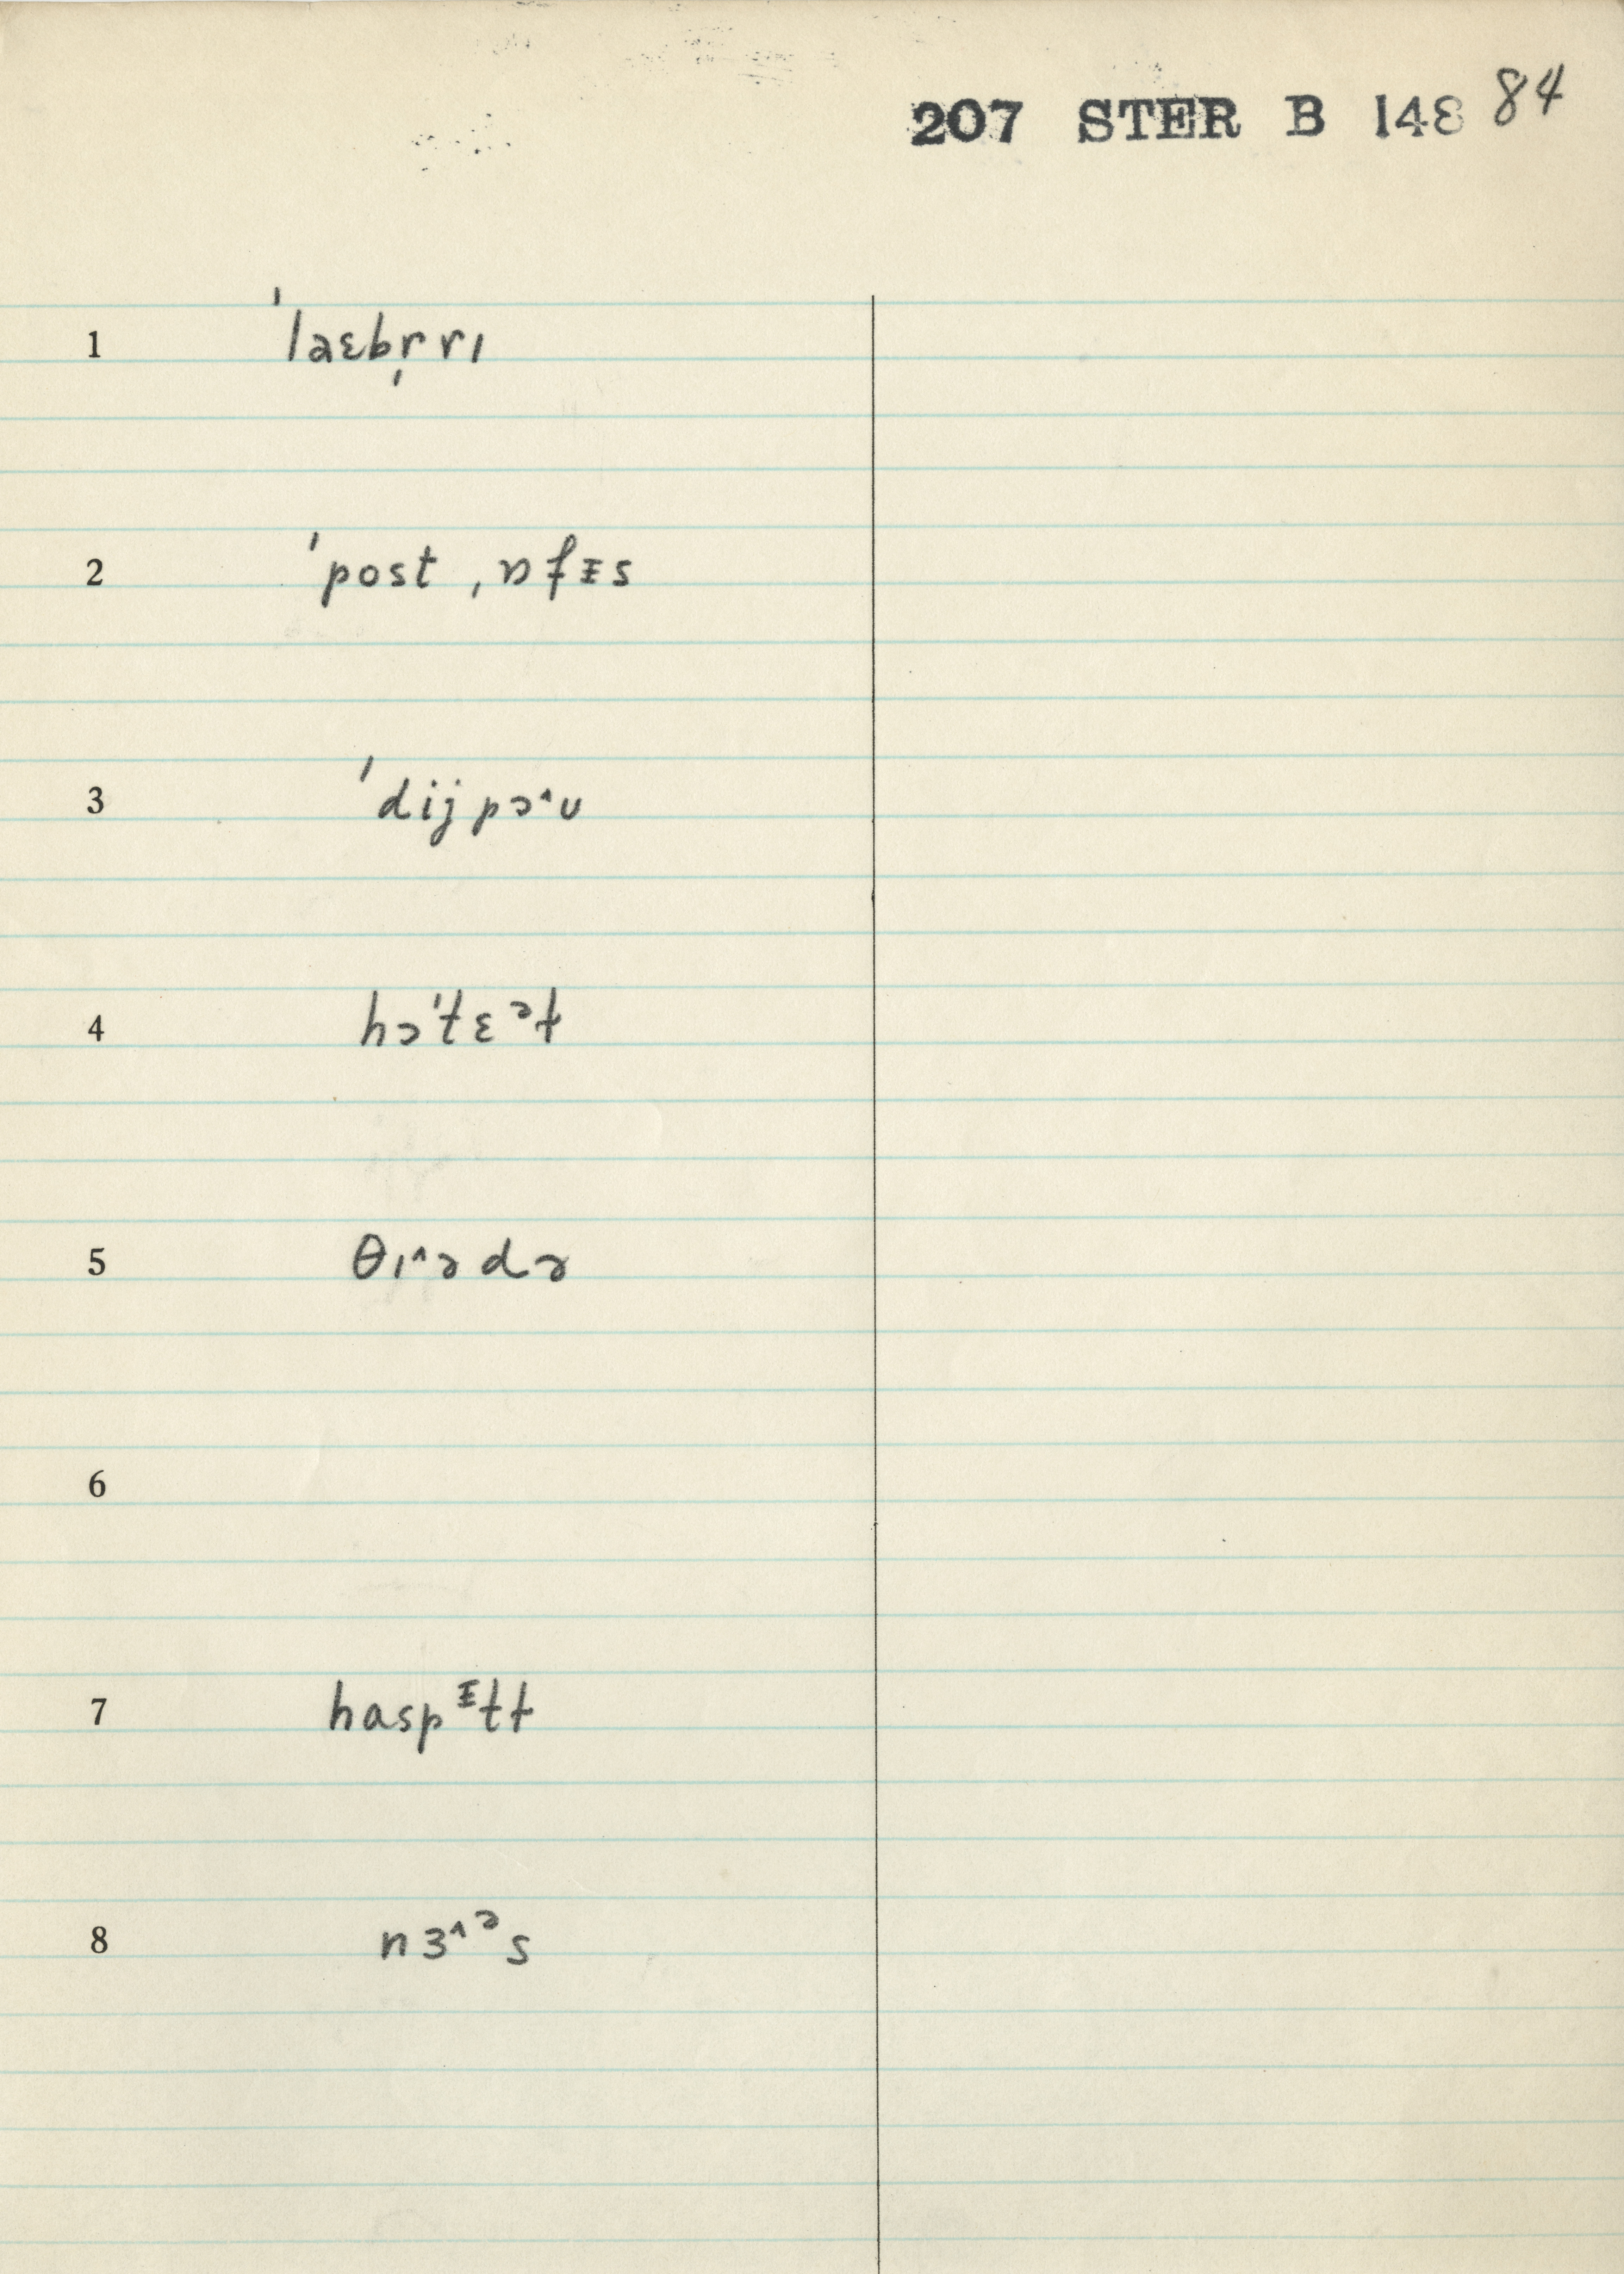 207 STER B 148 84
1 ˈlaɛbr̩rɪ
2 ˈpost ˌɒfᵻs
3 ˈdijpɔ˄ʊ
4 hɔˈtɛᵊɫ
5 θɪ˄ədə
6
7 haspᵻtɫ
8 nɜ˄ᵊs